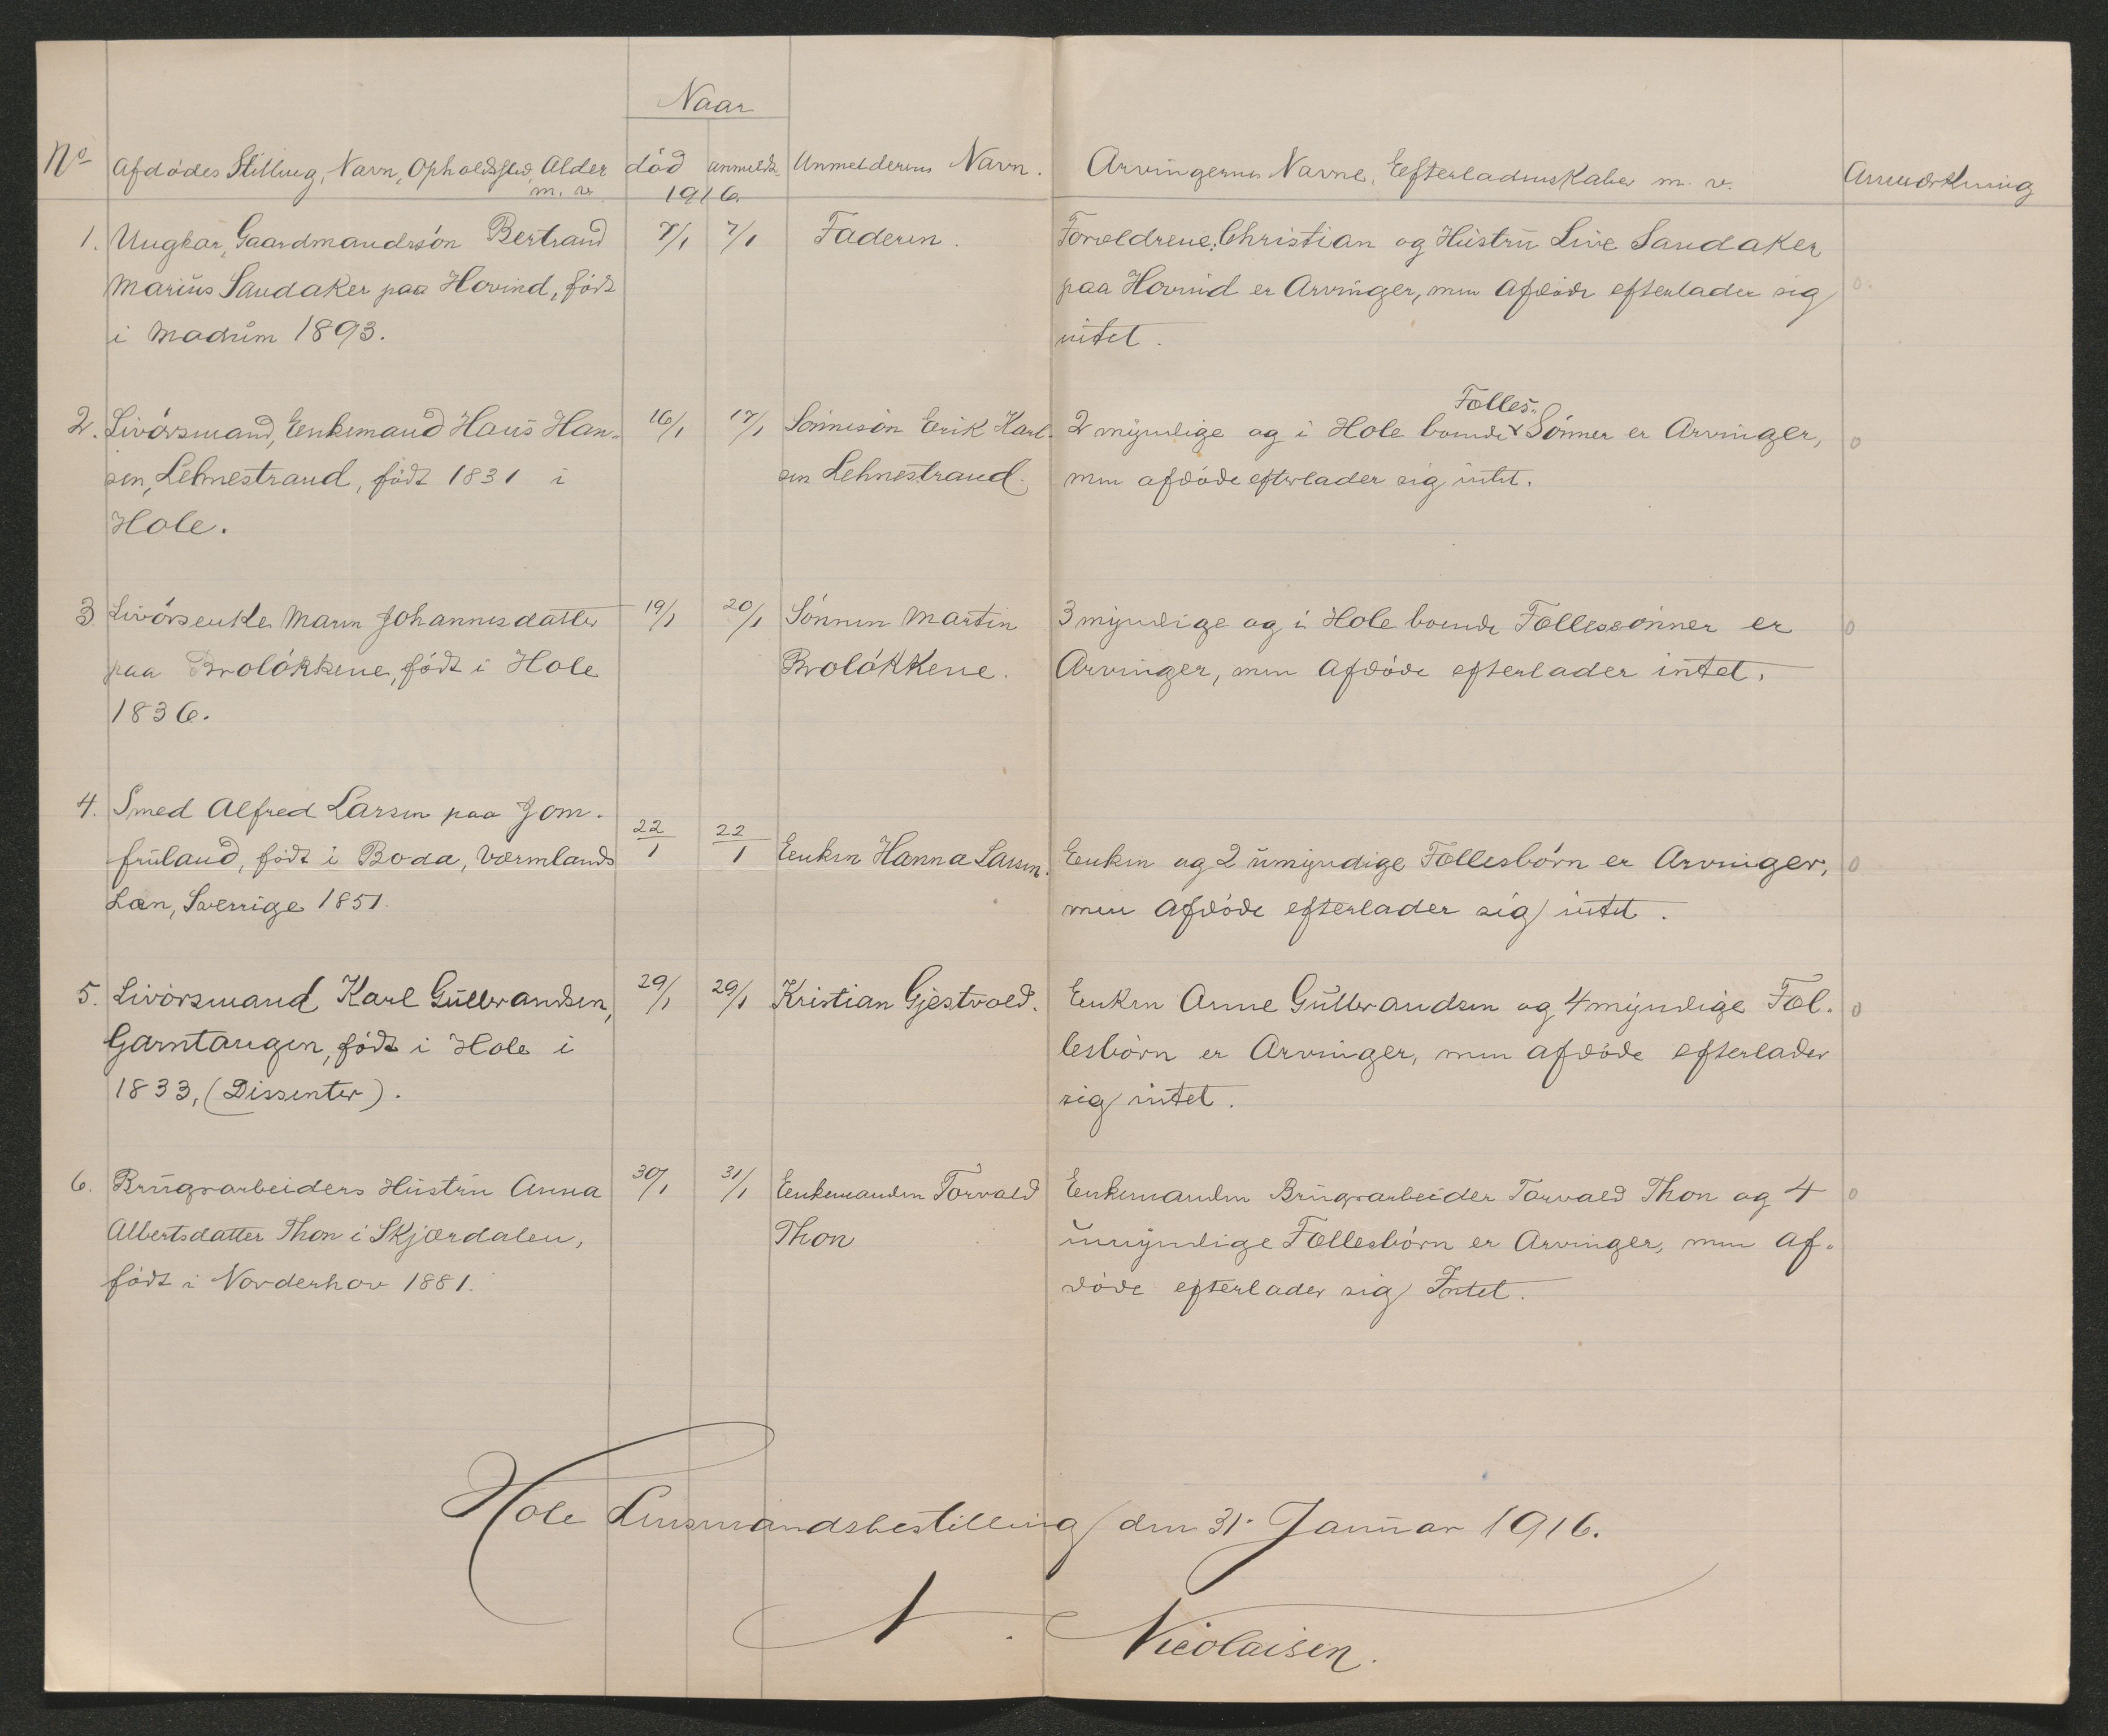 Naar
No Afdödes Stilling, Navn, Opholdssted, Alder m. v. död anmeldt 1916. Anmelderens Navn. Arvingernes Navne, Efterladenskaber m. v. Anmærkning
1. Ungkar, Gaardmandssön Bertrand 7/1 7/1 Faderen. Forældrene, Christian og Hustru Live Sandaker
Marius Sandaker paa Hovind, födt paa Hovind er Arvinger, men Afdöde efterlader sig 0.
i Modum 1893. intet.
2. Livörsmand, Enkemand Hans Han- 16/1 17/1 Sönnesön Erik Karl- 2 myndige og i Hole boende Fælles- Sönner er Arvinger, 0
sen, Lehnestrand, födt 1831 i sen Lehnestrand. men afdöde efterlader sig intet.
Hole.
3 Livörsenke Maren Johannesdatter 19/1 20/1 Sönnen Martin 3 myndige og i Hole boende Fællessönner er 0
paa Brolökkene, födt i Hole Brolökkene. Arvinger, men Afdöde efterlader intet.
1836.
4. Smed Alfred Larsen paa Jom-
fruland, födt i Boda, Værmlands 22/1 22/1 Enken Hanna Larsen. Enken og 2 umyndige Fællesbörn er Arvinger, 0
Læn, Sverrige 1851. men Afdöde efterlader sig intet.
5. Livörsmand Karl Gulbrandsen, 29/1 29/1 Kristian Gjestvold. Enken Anne Gulbrandsen og 4 myndige Fæl- 0
Garntangen, födt i Hole i lesbörn er Arvinger, men afdöde efterlader
1833, (Dissenter). sig intet.
6. Brugsarbeiders Hustru Anna 30/1 31/1 Enkemanden Torvald Enkemanden Brugsarbeider Torvald Thon og 4 0
Albertsdatter Thon i Skjærdalen, Thon umyndige Fællesbörn er Arvinger, men af-
födt i Norderhov 1881. döde efterlader sig Intet.
Hole Lensmandsbestilling den 31. Januar 1916.
N. Nicolaisen.